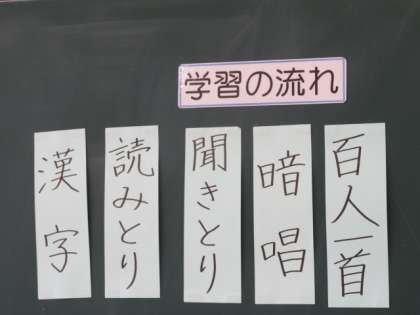 学習の流れ
百人一首
暗唱
聞きとり
読みとり
漢字